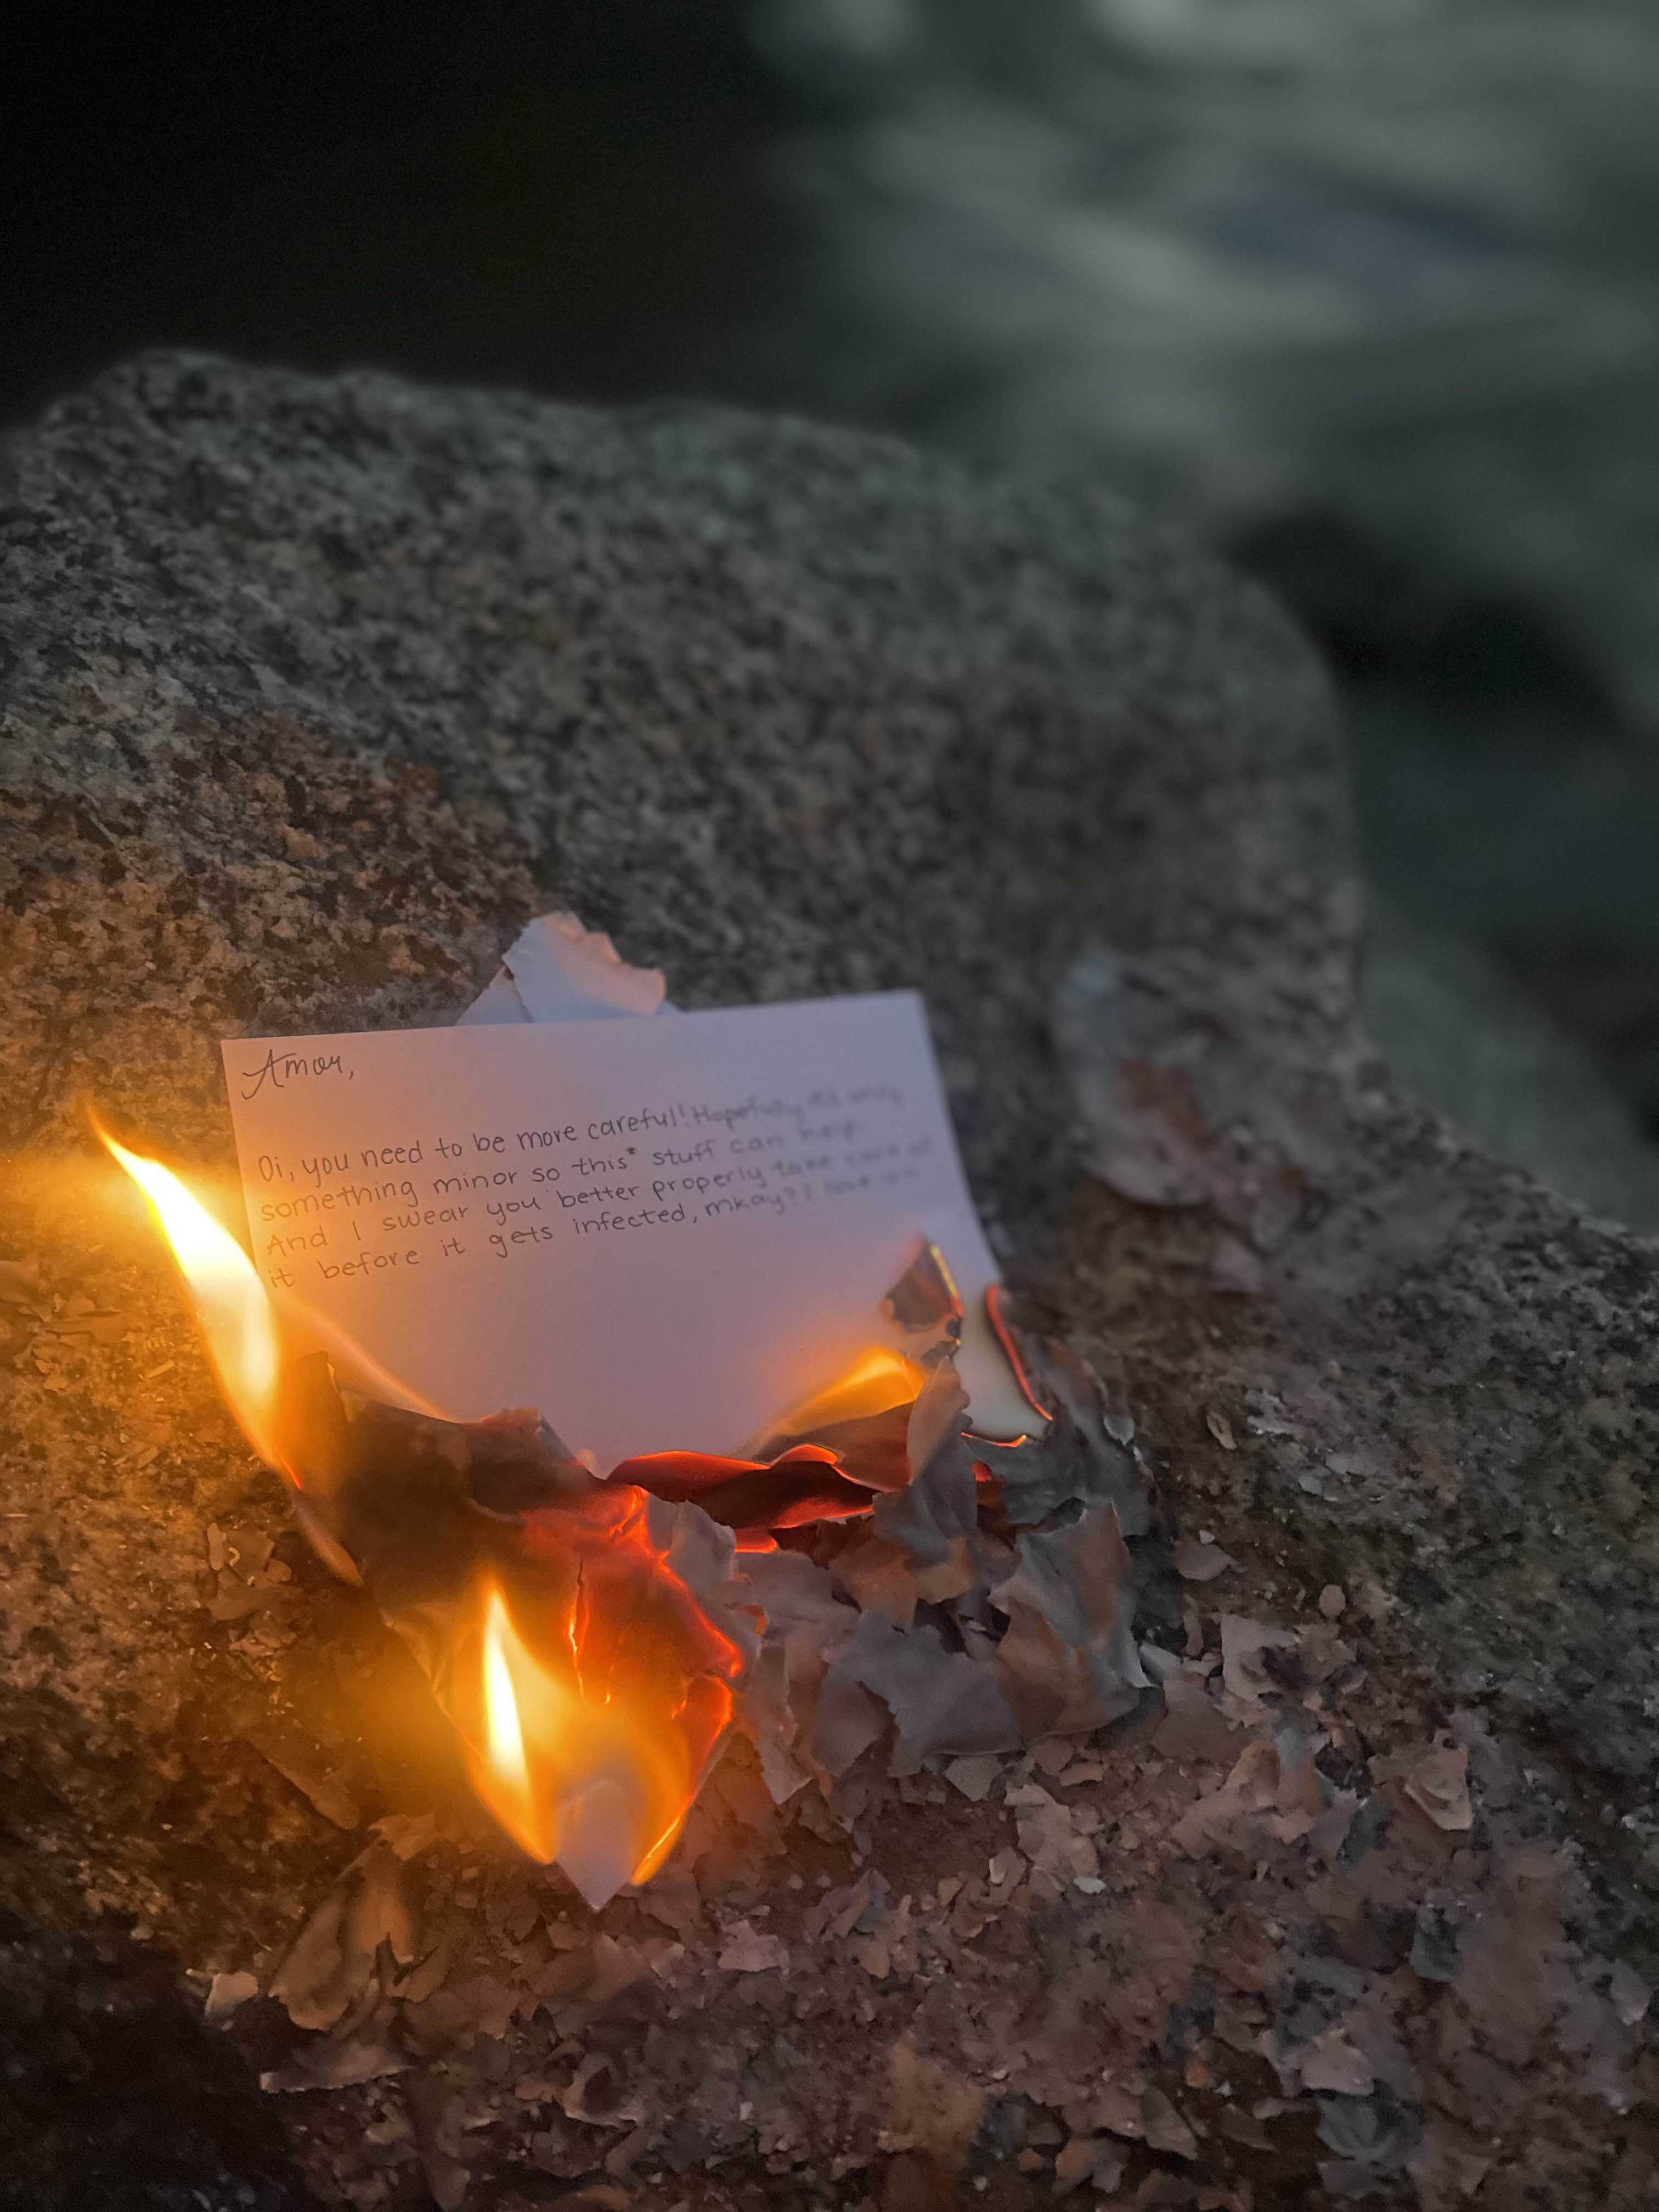 Amor,
Oi, you need to be more careful! Hopefully it's only
something minor so this* stuff can help.
And I swear you better properly take care of
it before it gets infected, mkay? I love